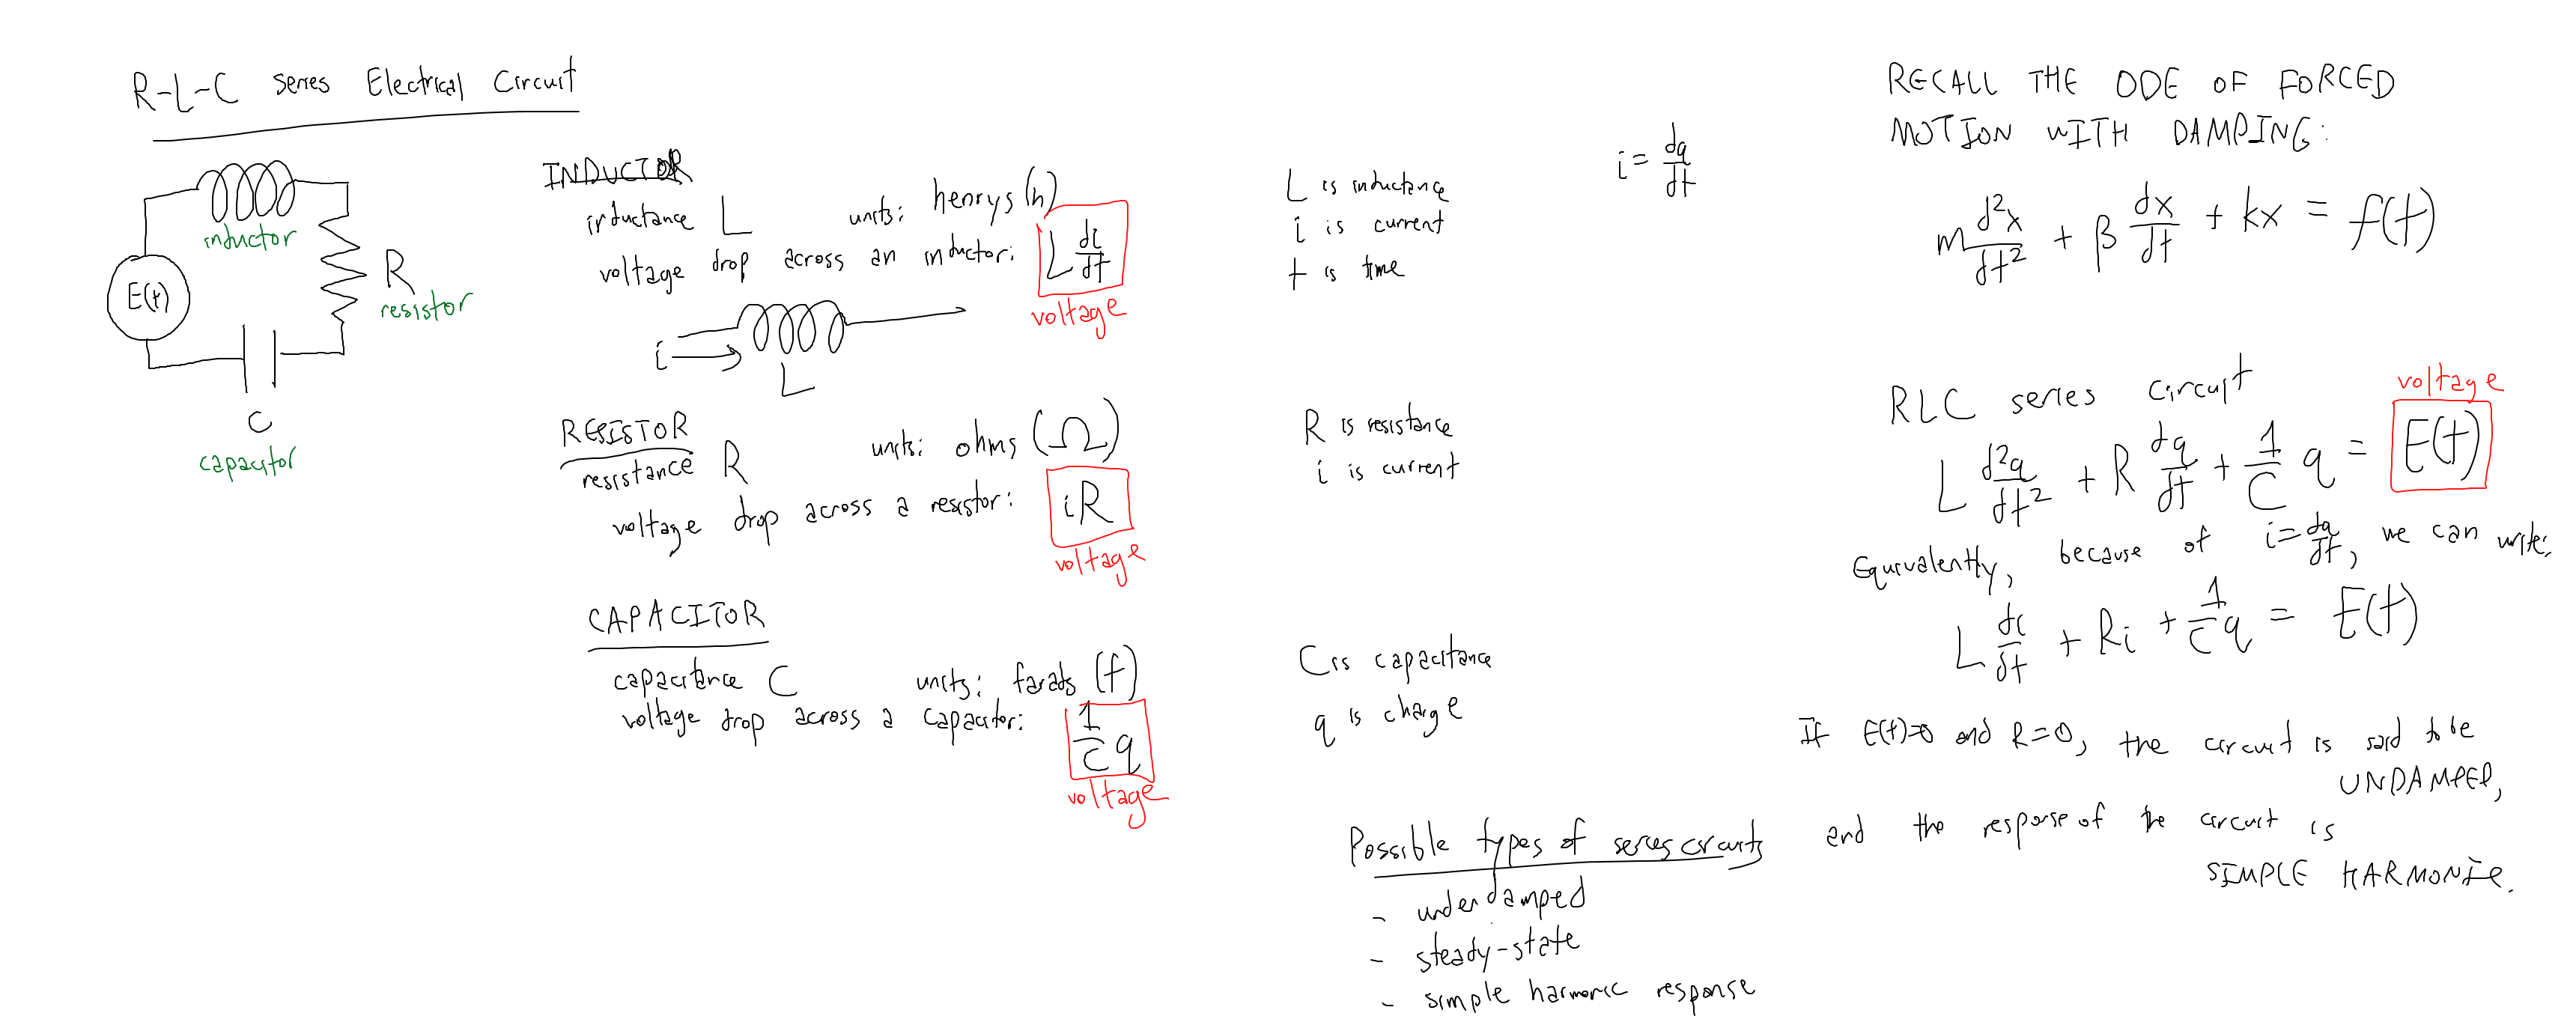 R-L-C series Electrical Circuit
inductor
E(t)
R
resistor
C
capacitor
INDUCTOR
inductance L units: henrys (h)
voltage drop across an inductor: L di/dt
voltage
i
L
RESISTOR
resistance R units: ohms (Ω)
voltage drop across a resistor: iR
voltage
CAPACITOR
capacitance C units: farads (f)
voltage drop across a capacitor: 1/C q
voltage
L is inductance
i is current
t is time
i = dq/dt
R is resistance
i is current
C is capacitance
q is charge
Possible types of series circuits
- underdamped
- steady-state
- simple harmonic response
RECALL THE ODE OF FORCED
MOTION WITH DAMPING:
m d²x/dt² + β dx/dt + kx = f(t)
RLC series circuit
voltage
L d²q/dt² + R dq/dt + 1/C q = E(t)
Equivalently, because of i = dq/dt, we can write:
L di/dt + Ri + 1/C q = E(t)
If E(t)=0 and R=0, the circuit is said to be
UNDAMPED,
and the response of the circuit is
SIMPLE HARMONIC.